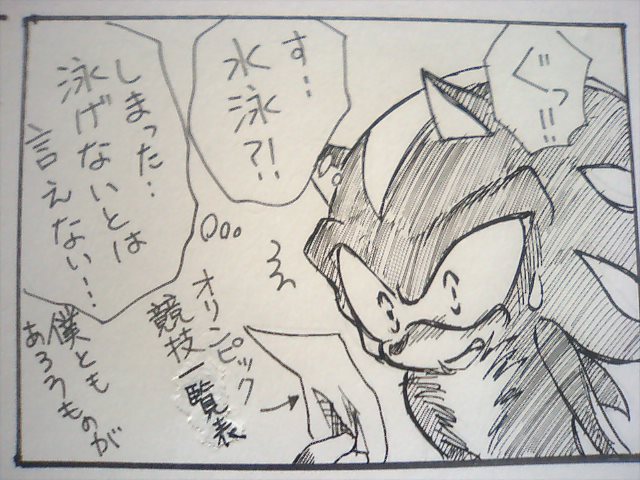 ぐっ!!
す…
水泳?!
しまった…
泳げないとは
言えない…
オリンピック
競技一覧表
僕とも
あろうものが